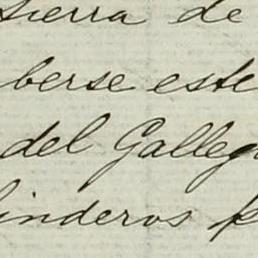 tierra de
berse este
del Galleg
linderos p